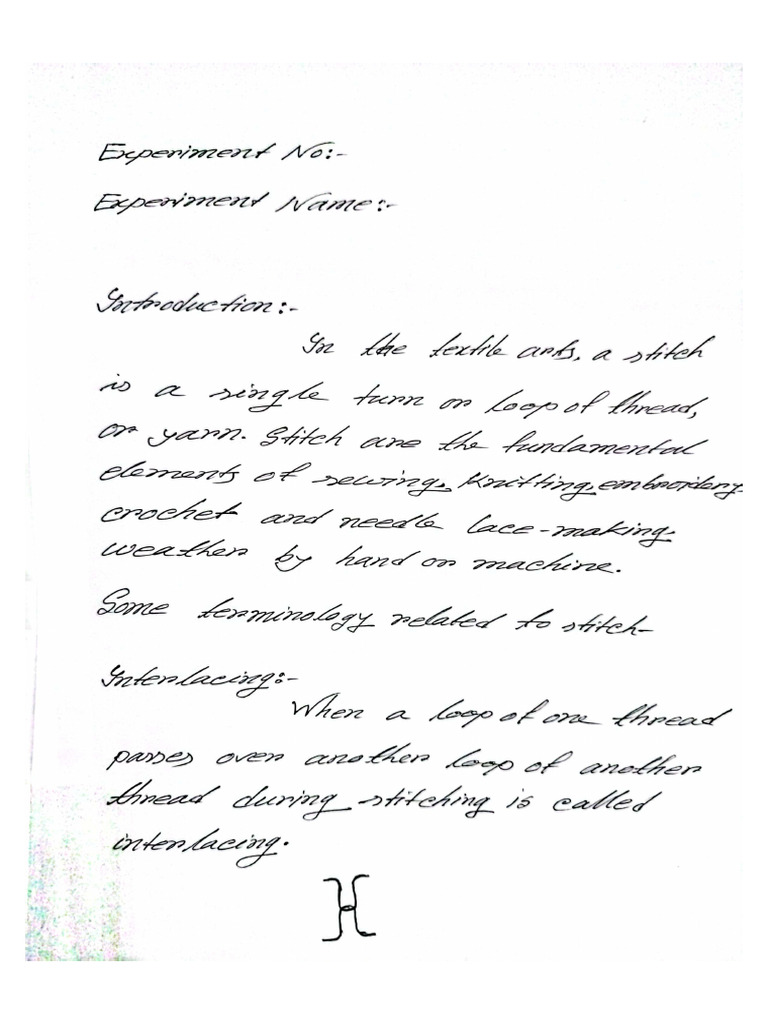 Experiment No:-
Experiment Name:-
Introduction:-
In the textile arts, a stitch
is a single turn or loop of thread,
or yarn. Stitch are the fundamental
elements of sewing, Knitting, embroidery
crochet and needle lace-making,
weather by hand or machine.
Some terminology related to stitch-
Interlacing:-
When a loop of one thread
passes over another loop of another
thread during stitching is called
interlacing.